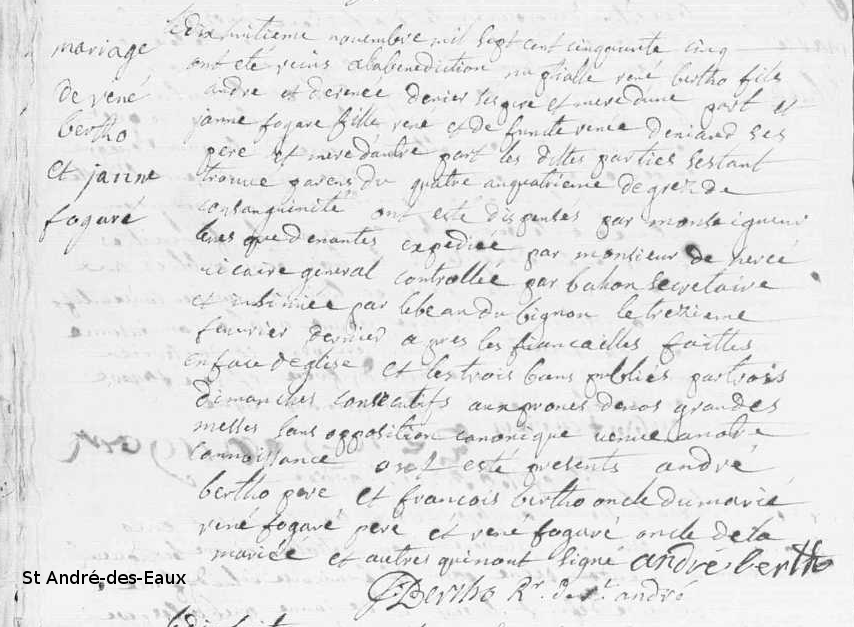 mariage
de rené
bertho
et janne
fogaré
Le dix huitieme novembre mil sept cent cinquante cinq
ont été recus a la benediction nuptialle rené bertho fils
andre et de renee denier ses pere et mere dune part et
janne fogare fille rené et de funte renée deniaud ses
pere et mere dautre part les dittes parties sestant
trouve parens du quatre au quatrieme degrez de
consanguinité ont esté dispensés par monseigneur
leves que de nantes expediée par monsieur de hercé
vicaire general controllée par bahon secretaire
et insinuée par lebeau du bignon le trezieme
fevrier dernier apres les fiancailles faittes
en face deglise et les trois bans publiés par trois
dimanches consecutifs aux prones de nos grandes
messes sans opposition canonique venue a notre
connoissance ont esté presents andré
bertho pere et francois bertho oncle du marié
rené fogaré pere et rené fogaré oncle de la
mariée et autres qui nont signé andré bertho
Bertho Rr. de st. andré
St André-des-Eaux